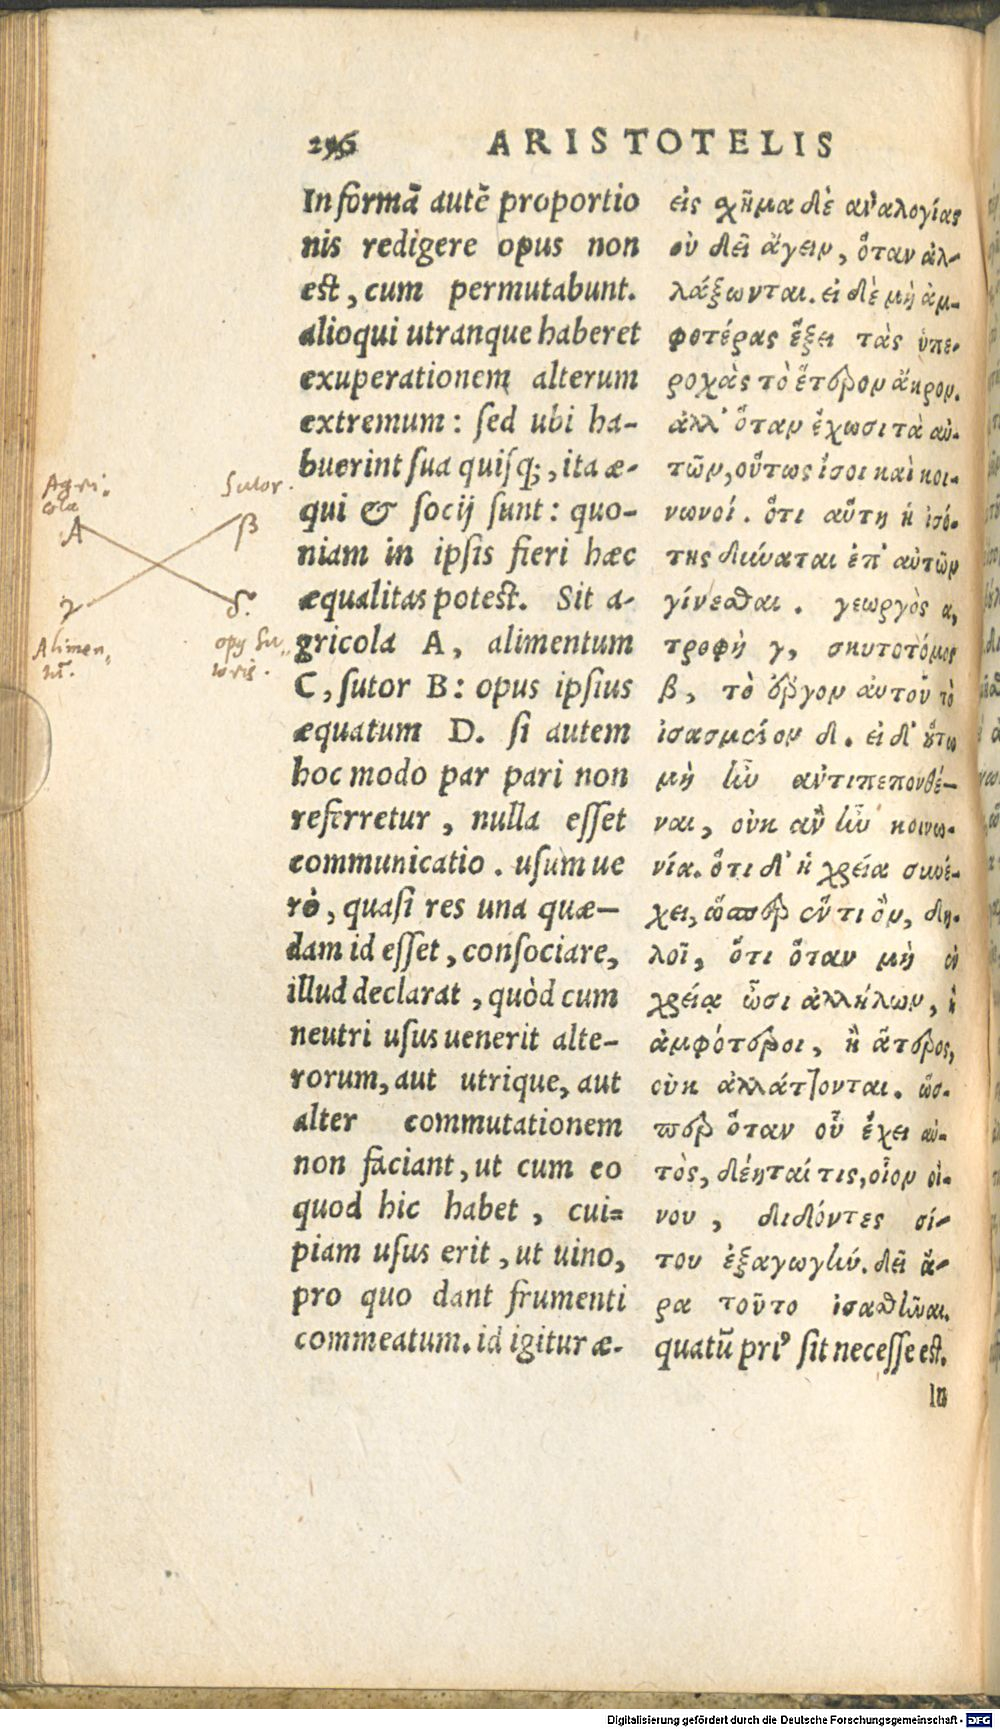 296 ARISTOTELIS
In formã autẽ proportio
nis redigere opus non
est, cum permutabunt.
alioqui utranque haberet
exuperationem alterum
extremum: sed ubi ha-
buerint sua quisq;, ita æ-
qui & socij sunt: quo-
niam in ipsis fieri hæc
æqualitas potest. Sit a-
gricola A, alimentum
C, sutor B: opus ipsius
æquatum D. si autem
hoc modo par pari non
referretur, nulla esset
communicatio. usum ue
rò, quasi res una quæ-
dam id esset, consociare,
illud declarat, quòd cum
neutri usus uenerit alte-
rorum, aut utrique, aut
alter commutationem
non faciant, ut cum eo
quod hic habet, cui=
piam usus erit, ut uino,
pro quo dant frumenti
commeatum. id igitur æ-
εἰς σχῆμα δὲ ἀναλογίας
οὐ δεῖ ἄγειν, ὅταν ἀλ-
λάξωνται. εἰ δὲ μὴ ἀμ-
φοτέρας ἕξει τὰς ὑπε-
ροχὰς τὸ ἕτερον ἄκρον.
ἀλλ' ὅταν ἔχωσι τὰ αὑ-
τῶν, οὕτως ἴσοι καὶ κοι-
νωνοί. ὅτι αὕτη ἡ ἰσό-
της δύναται ἐπ' αὐτῶν
γίνεσθαι. γεωργὸς α,
τροφὴ γ, σκυτοτόμος
β, τὸ ἔργον αὐτοῦ τὸ
ἰσασμένον δ. εἰ δ' οὕτω
μὴ ἦν ἀντιπεπονθέ-
ναι, οὐκ ἂν ἦν κοινω-
νία. ὅτι δ' ἡ χρεία συνέ-
χει, ὥσπερ ἕν τι ὄν, δη-
λοῖ, ὅτι ὅταν μὴ ἐν
χρείᾳ ὦσι ἀλλήλων, ἢ
ἀμφότεροι, ἢ ἅτερος,
οὐκ ἀλλάττονται. ὥσ-
περ ὅταν οὗ ἔχει αὐ-
τὸς, δέηταί τις, οἷον οἴ-
νου, διδόντες σί-
του ἐξαγωγήν. δεῖ ἄ-
ρα τοῦτο ἰσασθῆναι.
quatũ priꝰ sit necesse est.
In
Agri.
cola
A
Sutor.
β
γ
δ.
Alimen,
tũ.
opꝰ Su,,
toris.
Digitalisierung gefördert durch die Deutsche Forschungsgemeinschaft - DFG